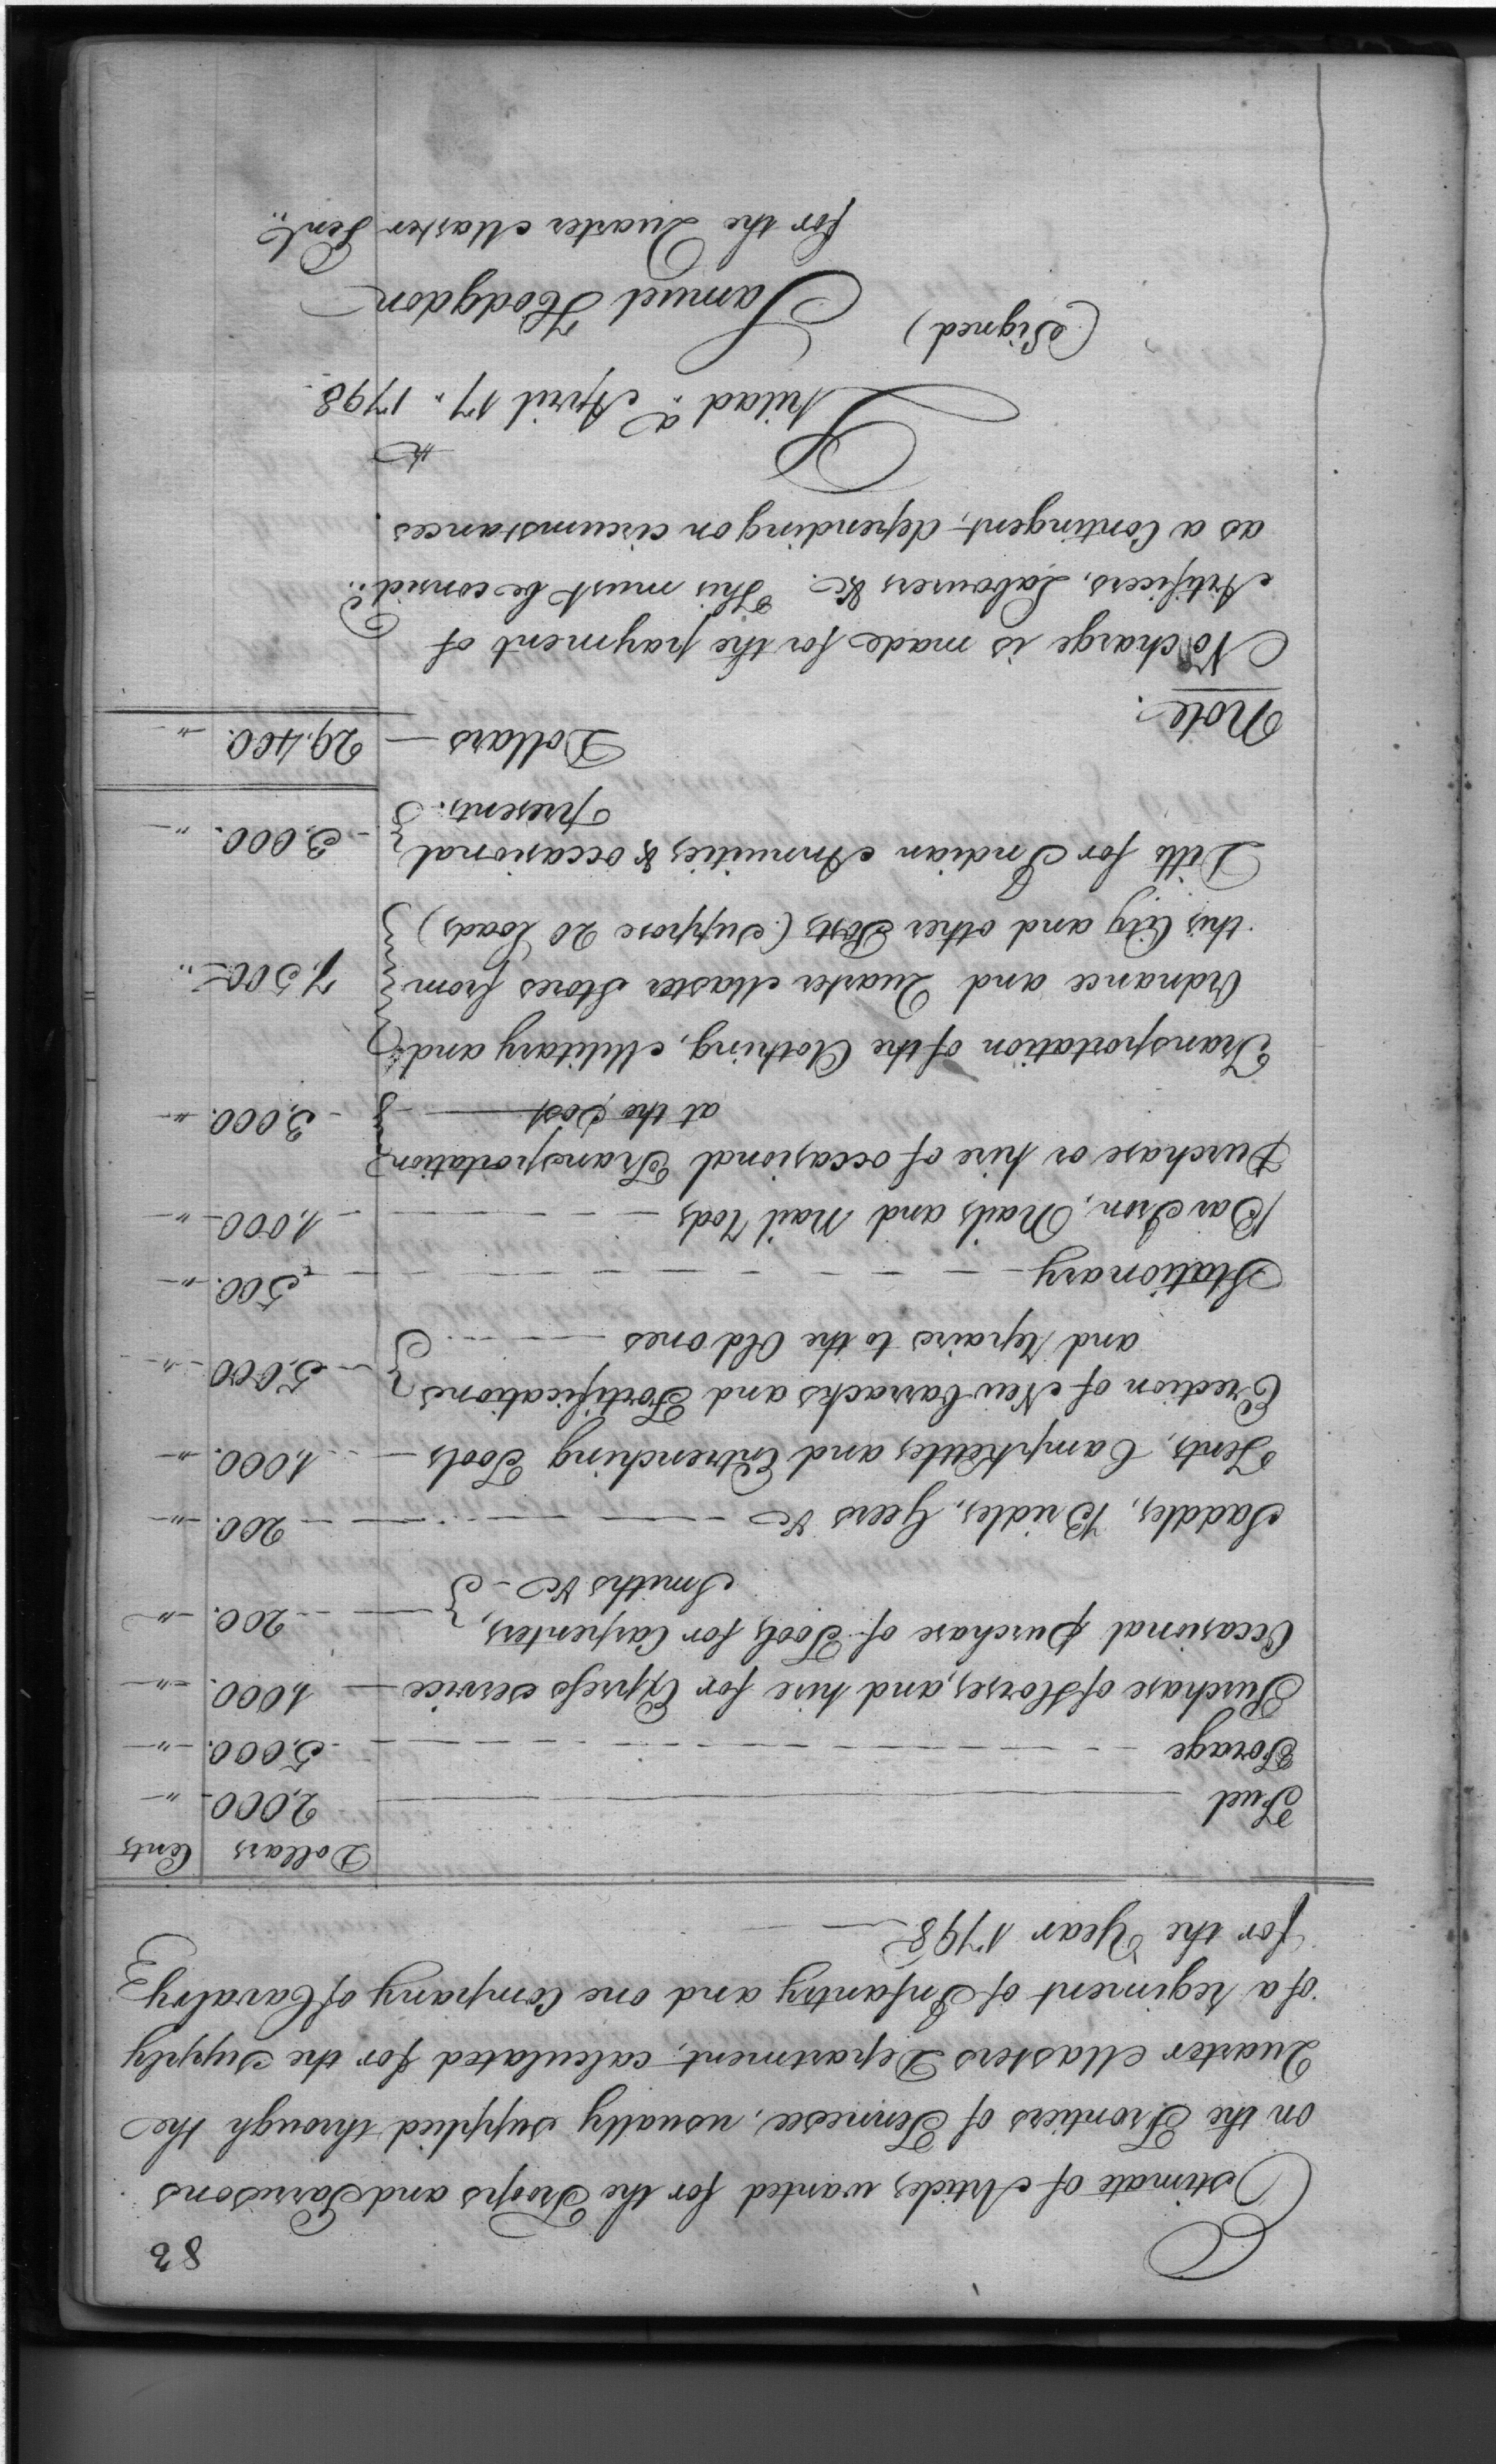 82
Estimate of Articles wanted for the Troops and Garrisons
on the Frontiers of Tennesee, usually supplied through the
Quarter Masters Department, calculated for the supply
of a regiment of Infantry and one Company of Cavalry
for the Year 1798
Dollars Cents
Fuel 2,000. "
Forage 5,000. "
Purchase of Horses, and hire for Express service 1.000. "
Occasional purchase of Tools for Carpenters, 200. "
Smiths &c
Saddles, Bridles, Geers &c 200. "
Tents, Campkettles and Entrenching Tools 1.000. "
Erection of New barracks and Fortifications 5.000 "
and repairs to the Old ones
Stationary 500. "
Bar Iron, Nails and nail rods 1.000 "
Purchase or hire of occasional Transportation
at the Post 3,000. "
Transportation of the Clothing, Military and
Ordnance and Quarter Master Stores from 7.500 "
this City and other Posts (suppose 20 loads)
Ditto for Indian Annuities & occasional 3.000. "
presents.
Dollars 29.400. "
Note.
No charge is made for the payment of
Artificers, Labourers &c. This must be consid.d
as a Contingent, depending on circumstances.
Philad.a April 17.th 1798.
(Signed) Samuel Hodgdon
for the Quarter Master Genl.